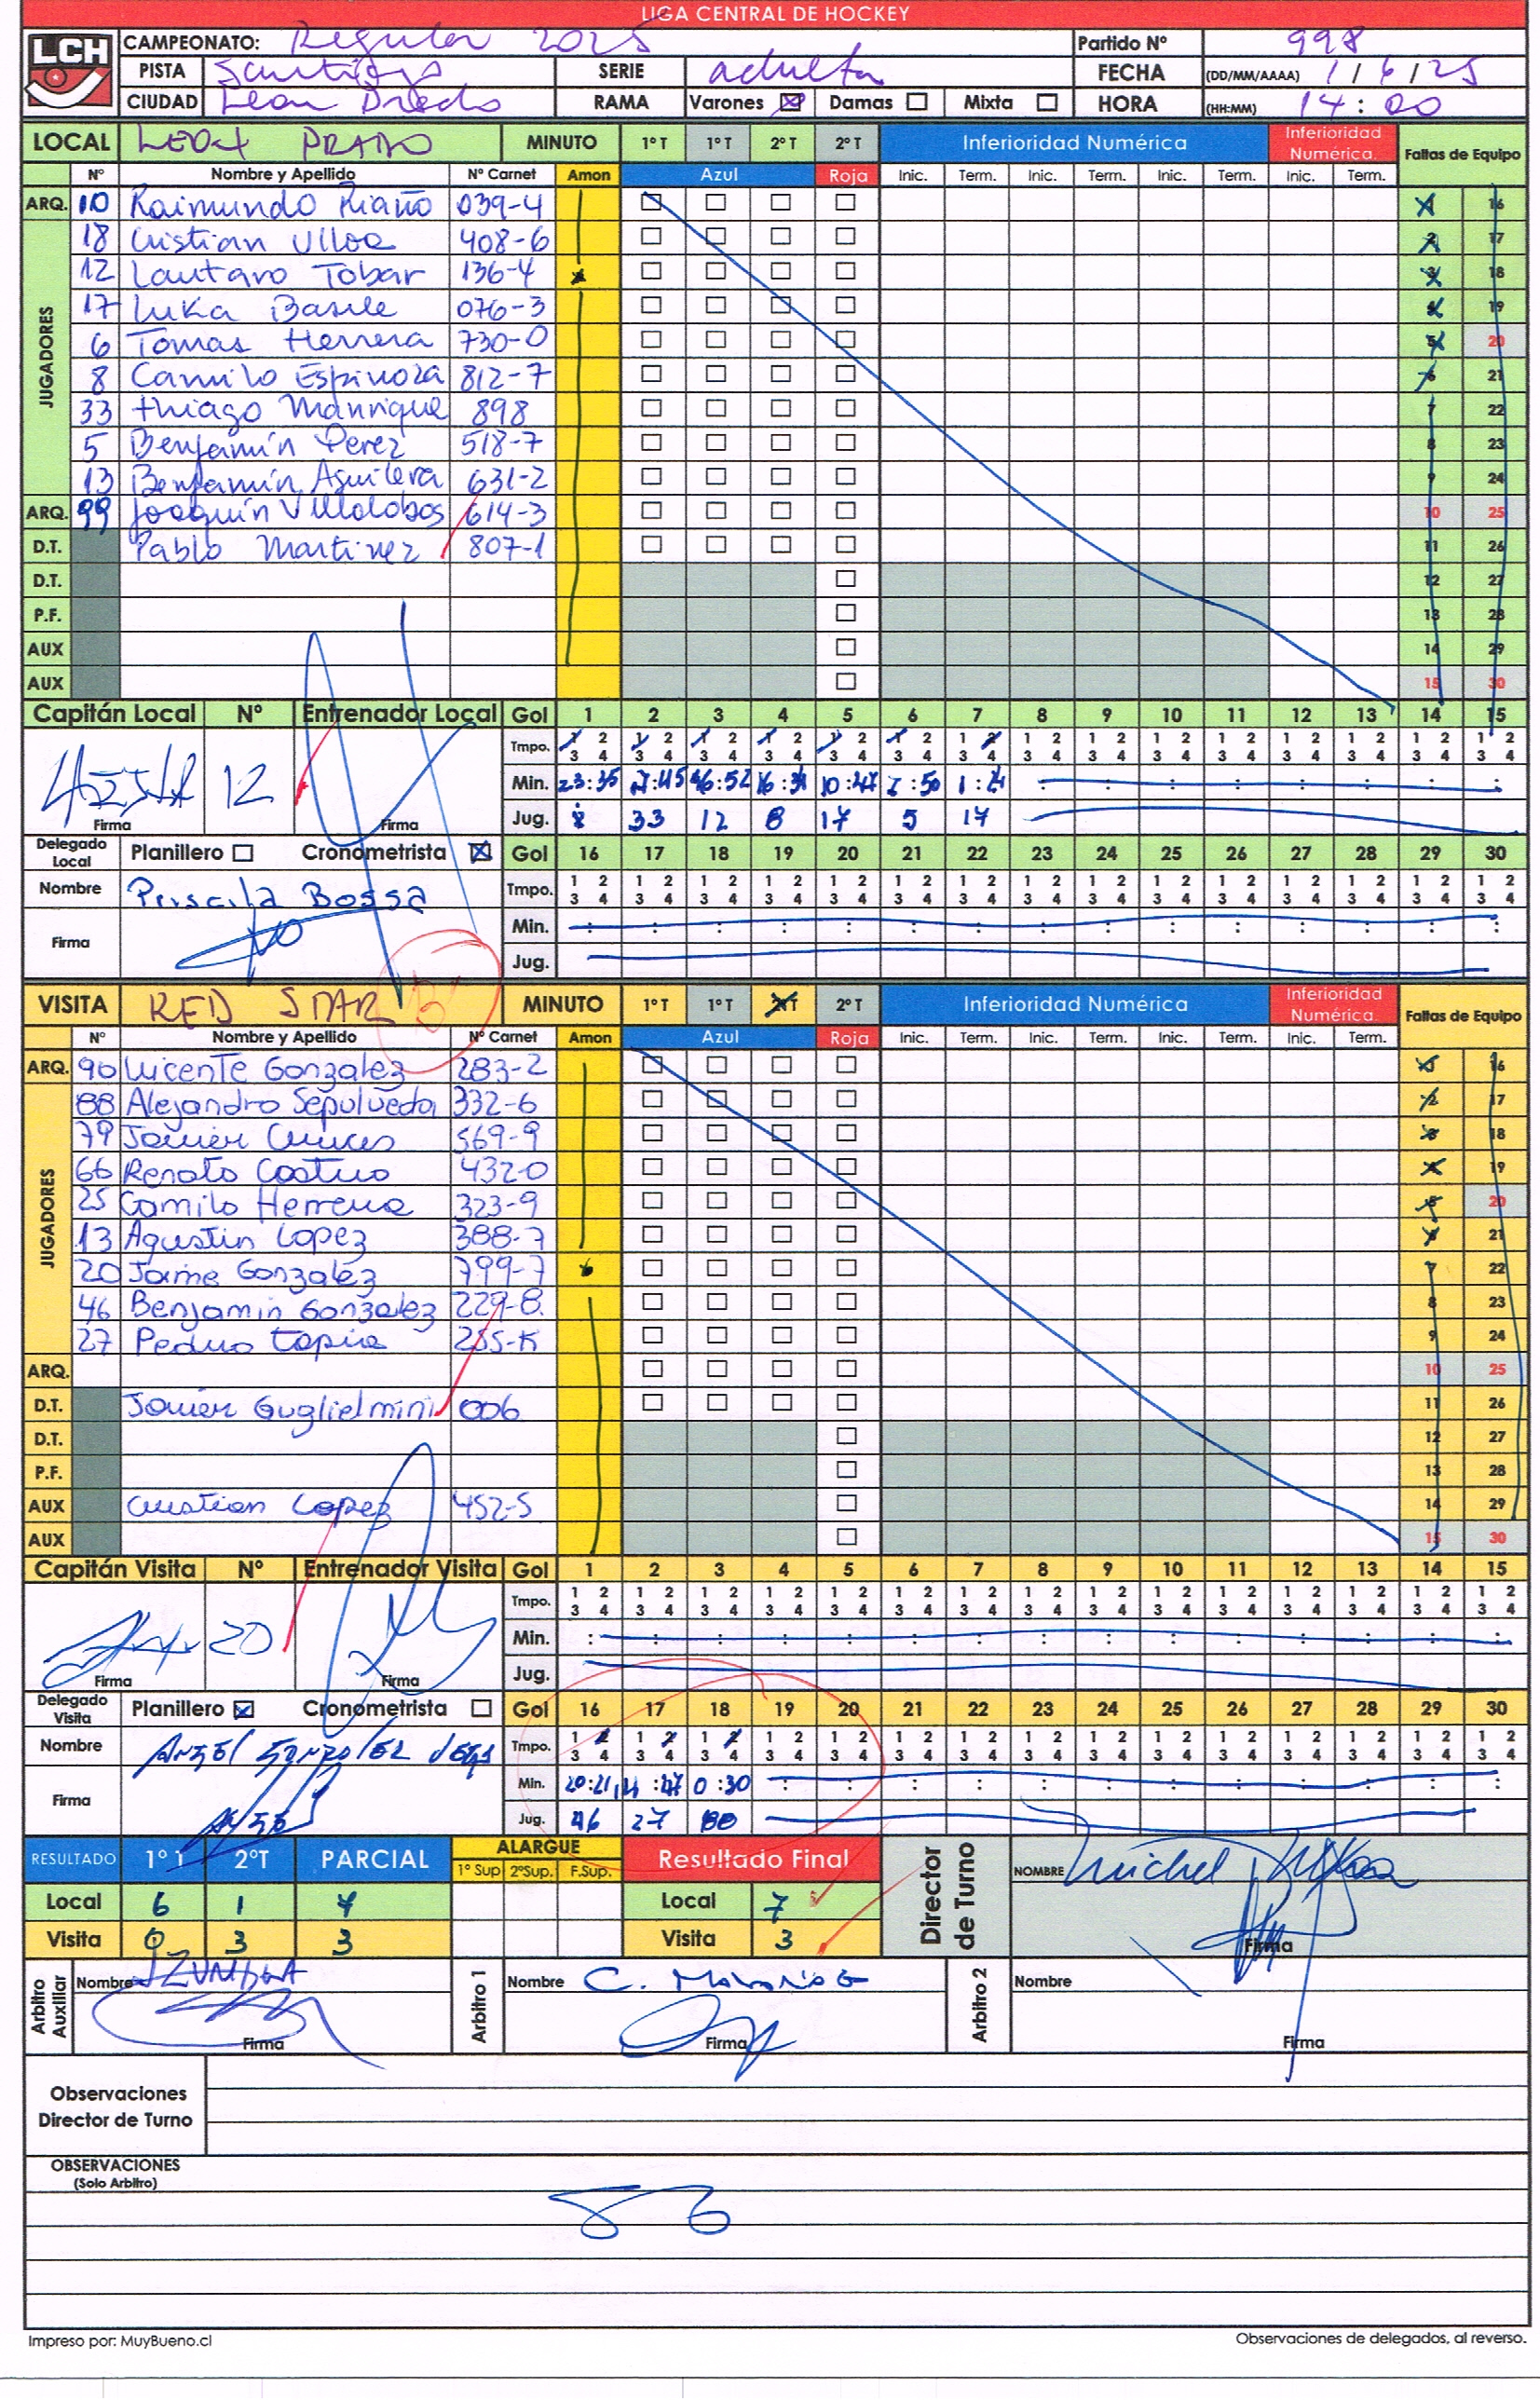 LIGA CENTRAL DE HOCKEY
LCH
CAMPEONATO: Regular 2025 Partido Nº 998
PISTA Santiago SERIE adulta FECHA (DD/MM/AAAA) 1/6/25
CIUDAD Leon Prado RAMA Varones Damas Mixta HORA (HH:MM) 14:00
LOCAL LEON PRADO MINUTO 1º T 1º T 2º T 2º T Inferioridad Numérica Inferioridad Numérica. Faltas de Equipo
Nº Nombre y Apellido Nº Carnet Amon Azul Roja Inic. Term. Inic. Term. Inic. Term. Inic. Term.
ARQ. 10 Raimundo Riaño 039-4 1 16
JUGADORES
18 Cristian Ulloa 408-6 2 17
12 Lautaro Tobar 136-4 x 3 18
17 Luka Basile 076-3 4 19
6 Tomas Herrera 730-0 5 20
8 Camilo Espinoza 812-7 6 21
33 thiago Manrique 898 7 22
5 Benjamín Perez 518-7 8 23
13 Benjamín Aguilera 631-2 9 24
ARQ. 99 Joaquín Villalobos 614-3 10 25
D.T. Pablo Martinez 807-1 11 26
D.T. 12 27
P.F. 13 28
AUX 14 29
AUX 15 30
Capitán Local Nº Entrenador Local Gol 1 2 3 4 5 6 7 8 9 10 11 12 13 14 15
Tmpo. 1 2 1 2 1 2 1 2 1 2 1 2 1 2 1 2 1 2 1 2 1 2 1 2 1 2 1 2 1 2
3 4 3 4 3 4 3 4 3 4 3 4 3 4 3 4 3 4 3 4 3 4 3 4 3 4 3 4 3 4
12 Min. 23:35 10:47 : : : : : : : :
Firma Firma Jug. 8 33 12 8 17 5 17
Delegado Local Planillero Cronometrista Gol 16 17 18 19 20 21 22 23 24 25 26 27 28 29 30
Nombre Priscila Bossa Tmpo. 1 2 1 2 1 2 1 2 1 2 1 2 1 2 1 2 1 2 1 2 1 2 1 2 1 2 1 2 1 2
3 4 3 4 3 4 3 4 3 4 3 4 3 4 3 4 3 4 3 4 3 4 3 4 3 4 3 4 3 4
Firma Min. : : : : : : : : : : : : : : :
Jug.
VISITA RED STAR B MINUTO 1º T 1º T 2º T 2º T Inferioridad Numérica Inferioridad Numérica. Faltas de Equipo
Nº Nombre y Apellido Nº Carnet Amon Azul Roja Inic. Term. Inic. Term. Inic. Term. Inic. Term.
ARQ. 90 Vicente Gonzalez 283-2 1 16
JUGADORES
88 Alejandro Sepulveda 332-6 2 17
79 Javier 569-9 3 18
66 Renato Castro 432-0 4 19
25 Camilo Herrera 323-9 5 20
13 Agustin Lopez 388-7 6 21
20 Jaime Gonzalez 799-7 7 22
46 Benjamin Gonzalez 229-8. 8 23
27 Pedro tapia 255-K 9 24
ARQ. 10 25
D.T. Javier Guglielmini 006 11 26
D.T. 12 27
P.F. 13 28
AUX Cristian Lopez 452-5 14 29
AUX 15 30
Capitán Visita Nº Entrenador Visita Gol 1 2 3 4 5 6 7 8 9 10 11 12 13 14 15
Tmpo. 1 2 1 2 1 2 1 2 1 2 1 2 1 2 1 2 1 2 1 2 1 2 1 2 1 2 1 2 1 2
3 4 3 4 3 4 3 4 3 4 3 4 3 4 3 4 3 4 3 4 3 4 3 4 3 4 3 4 3 4
20 Min. : : : : : : : : : : : : : : :
Firma Firma Jug.
Delegado Visita Planillero Cronometrista Gol 16 17 18 19 20 21 22 23 24 25 26 27 28 29 30
Nombre Angel Gonzalez Tmpo. 1 2 1 2 1 2 1 2 1 2 1 2 1 2 1 2 1 2 1 2 1 2 1 2 1 2 1 2 1 2
3 4 3 4 3 4 3 4 3 4 3 4 3 4 3 4 3 4 3 4 3 4 3 4 3 4 3 4 3 4
Firma Min. 20:21 0:30 : : : : : : : : : : : :
Jug. 46 27 88
RESULTADO 1º T 2ºT PARCIAL ALARGUE 1º Sup 2ºSup. F.Sup. Resultado Final Director de Turno NOMBRE Michel
Local 6 1 7 Local 7
Visita 0 3 3 Visita 3 Firma
Arbitro Auxiliar Nombre Arbitro 1 Nombre C. Arbitro 2 Nombre
Firma Firma Firma
Observaciones
Director de Turno
OBSERVACIONES
(Solo Arbitro)
Impreso por: MuyBueno.cl Observaciones de delegados, al reverso.